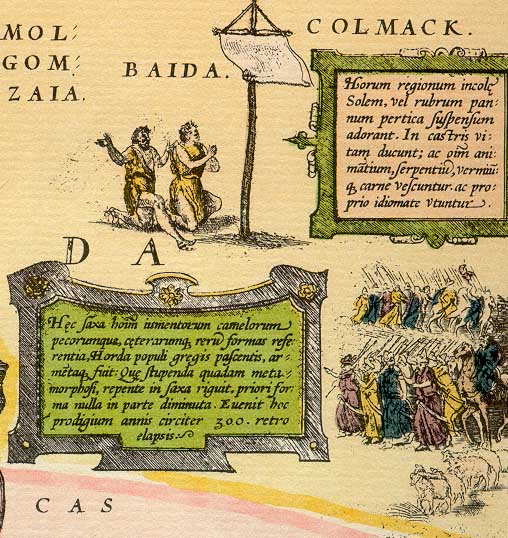 MOL-
GOM-
ZAIA.
BAIDA.
COLMACK.
Horum regionum incolę
Solem, vel rubrum pan-
num pertica suspensum
adorant. In castris vi-
tam ducunt; ac oīm ani-
mātium, serpentiū, vermiū-
q̨ carne vescuntur. ac pro-
prio idiomate vtuntur.
D A
Hęc saxa hoīm iumentorum camelorum
pecorumque, cęterarumq̨ rerū formas refe-
rentia, Horda populi gregis pascentis, ar-
mētaq̨ fuit: Quę stupenda quadam meta-
morphosi, repente in saxa riguit, priori for-
ma nulla in parte diminuta. Euenit hoc
prodigium annis circiter 300. retro
elapsis.
CAS